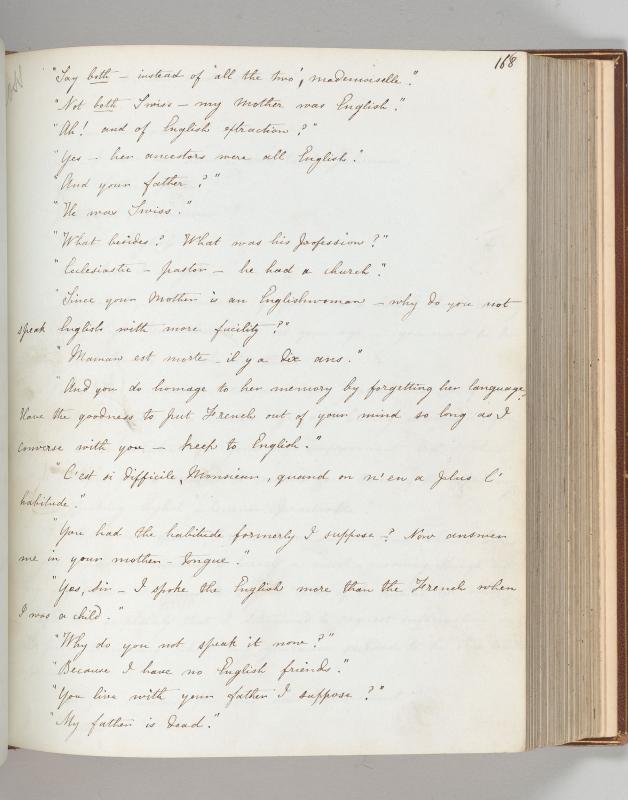 168
"Say both — instead of 'all the two', mademoiselle."
"Not both Swiss — my Mother was English."
"Ah! and of English extraction?"
"Yes — her ancestors were all English."
"And your father?"
"He was Swiss."
"What besides? What was his profession?"
"Ecclesiastic — pastor — he had a church."
"Since your Mother is an Englishwoman — why do you not
speak English with more facility?"
"Maman est morte — il y a dix ans."
"And you do homage to her memory by forgetting her language.
Have the goodness to put French out of your mind so long as I
converse with you — keep to English."
"C'est si difficile, Monsieur, quand on n'en a plus l'
habitude."
"You had the habitude formerly I suppose? Now answer
me in your mother-tongue."
"Yes, Sir — I spoke the English more than the French when
I was a child."
"Why do you not speak it now?"
"Because I have no English friends."
"You live with your father I suppose?"
"My father is dead."